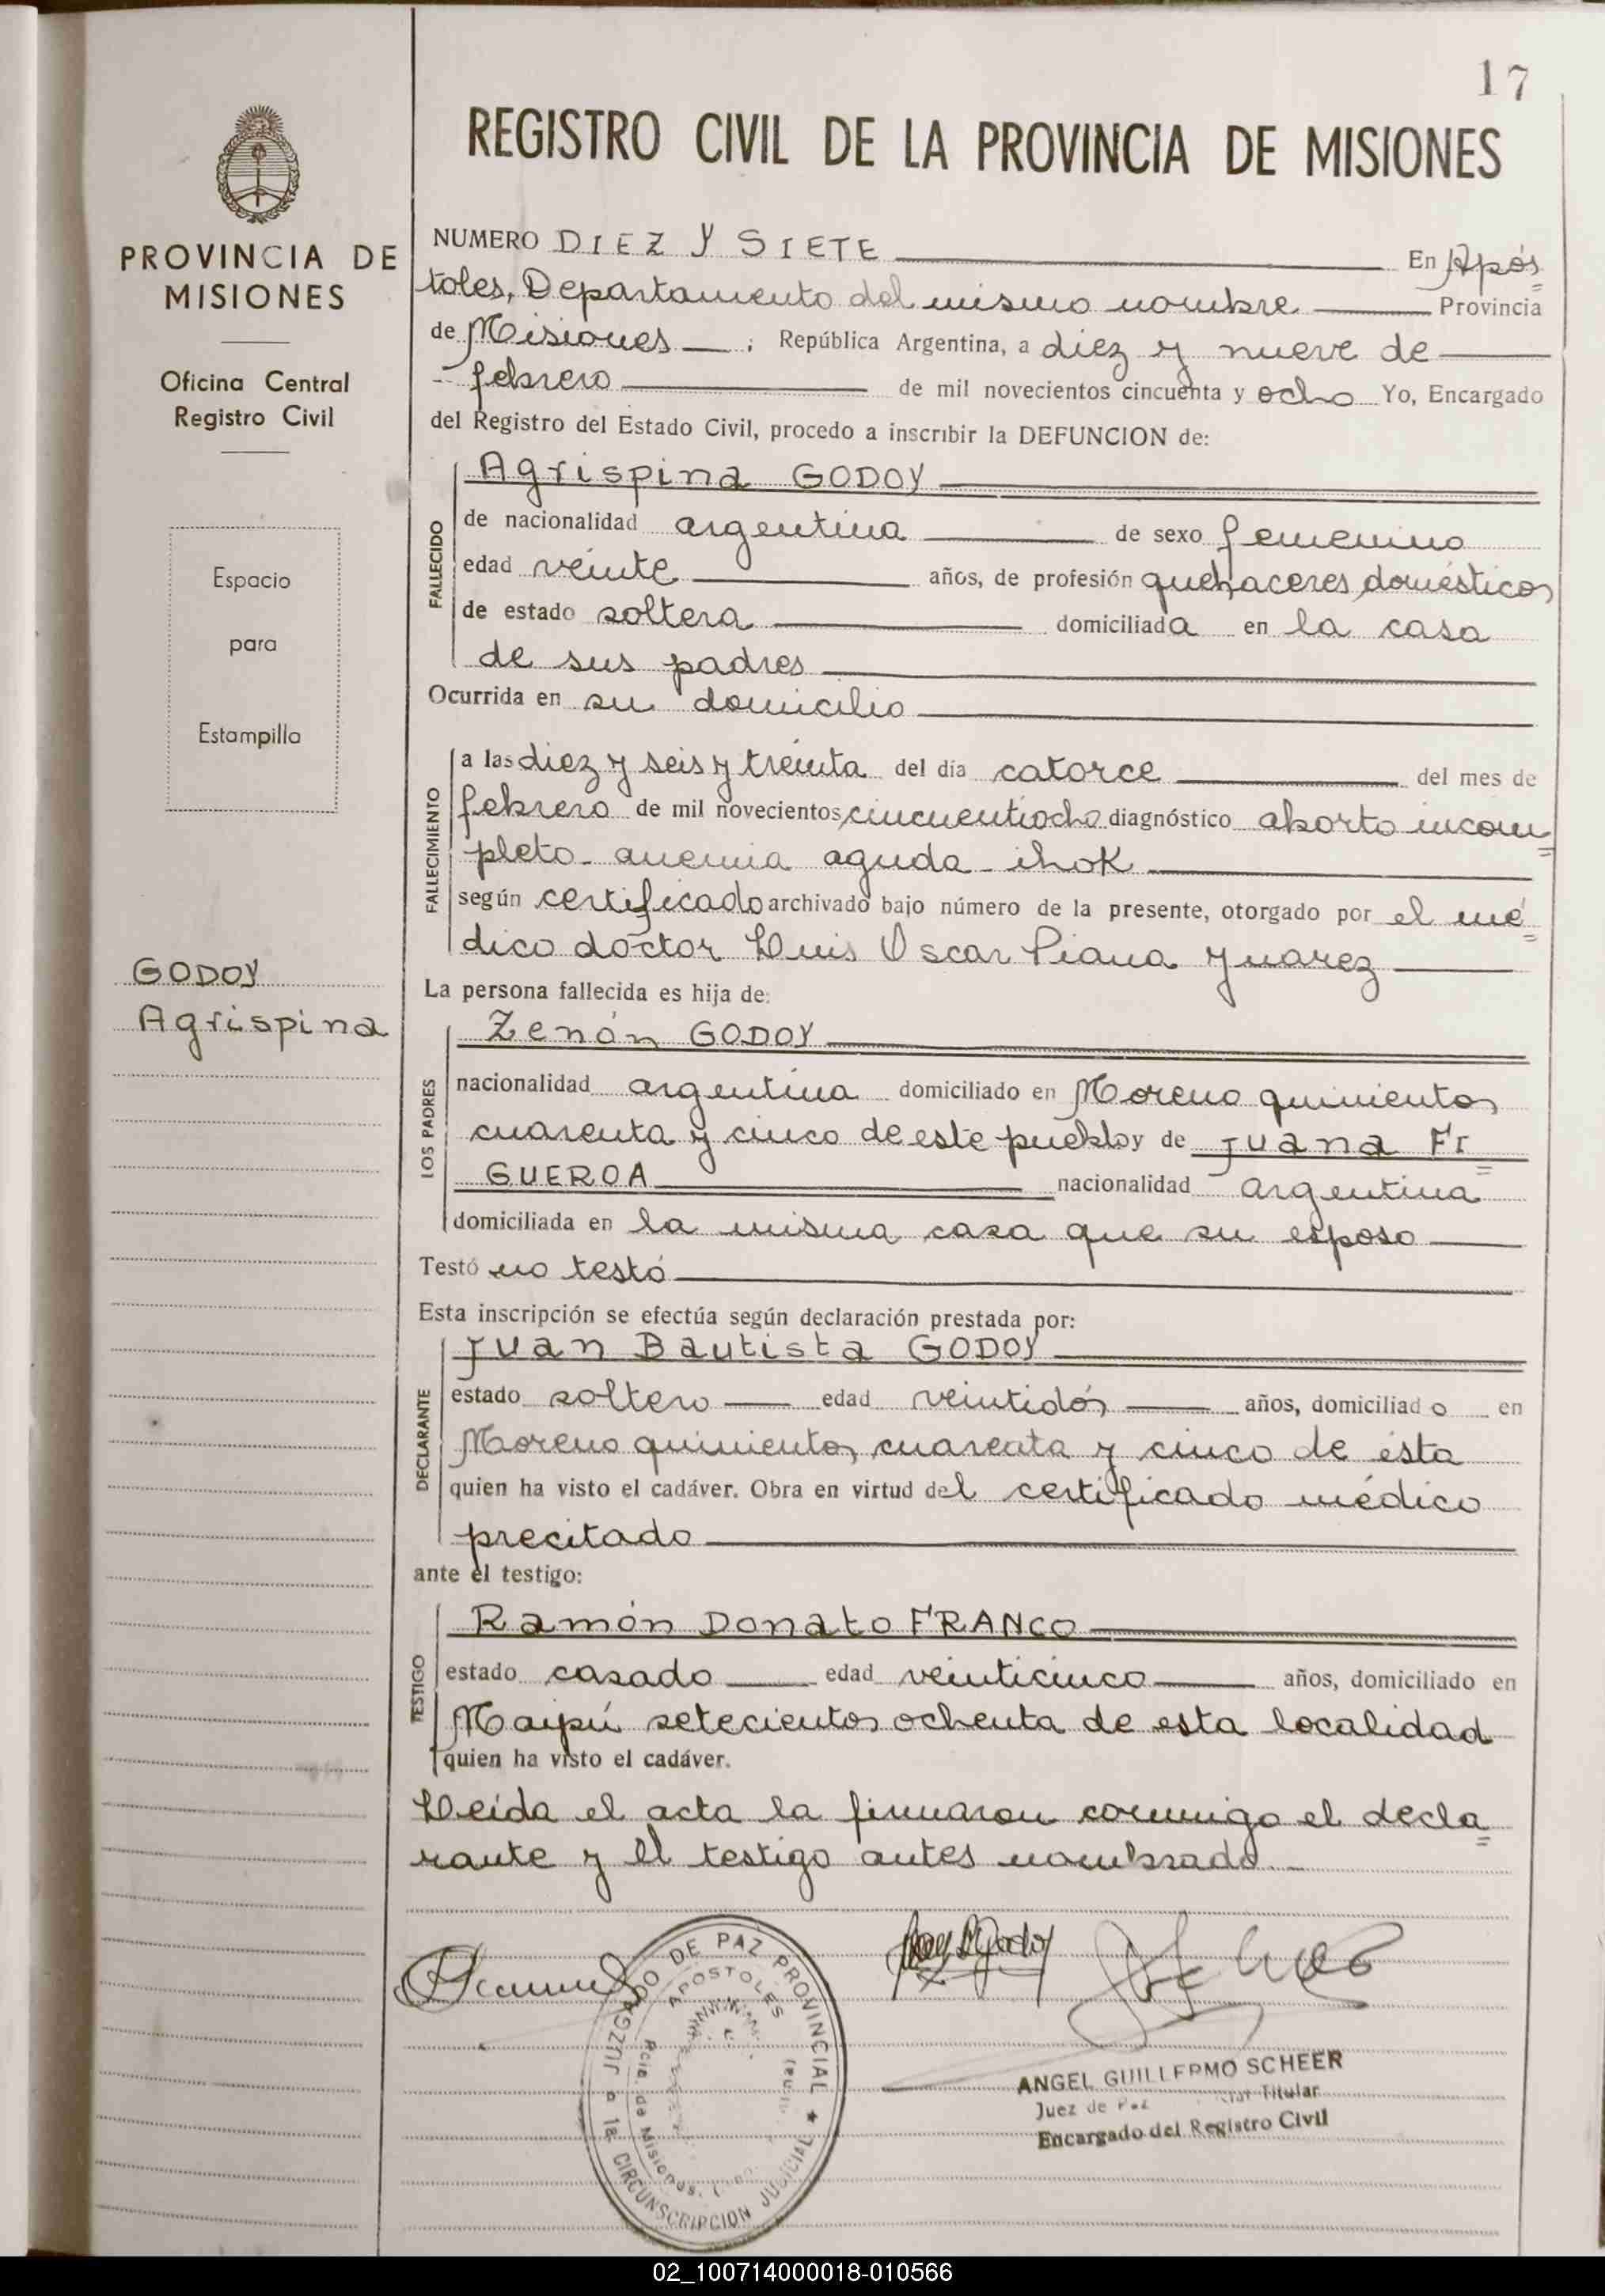 17
REGISTRO CIVIL DE LA PROVINCIA DE MISIONES
PROVINCIA DE
MISIONES
Oficina Central
Registro Civil
Espacio
para
Estampilla
GODOY
Agrispina
NUMERO DIEZ Y SIETE En Após=
toles, Departamento del mismo nombre Provincia
de Misiones ; República Argentina, a diez y nueve de
febrero de mil novecientos cincuenta y ocho Yo, Encargado
del Registro del Estado Civil, procedo a inscribir la DEFUNCION de:
FALLECIDO
Agrispina GODOY
de nacionalidad argentina de sexo femenino
edad veinte años, de profesión quehaceres domésticos
de estado soltera domiciliada en la casa
de sus padres
Ocurrida en su domicilio
FALLECIMIENTO
a las diez y seis y treinta del día catorce del mes de
febrero de mil novecientos cincuentiocho diagnóstico aborto incom=
pleto - anemia aguda - shok
según certificado archivado bajo número de la presente, otorgado por el mé=
dico doctor Luis Oscar Piana Juarez
La persona fallecida es hija de:
LOS PADRES
Zenón GODOY
nacionalidad argentina domiciliado en Moreno quinientos
cuarenta y cinco de este pueblo y de Juana FI=
GUEROA nacionalidad argentina
domiciliada en la misma casa que su esposo
Testó no testó
Esta inscripción se efectúa según declaración prestada por:
DECLARANTE
Juan Bautista GODOY
estado soltero edad veintidós años, domiciliado en
Moreno quinientos cuarenta y cinco de ésta
quien ha visto el cadáver. Obra en virtud del certificado médico
precitado
ante el testigo:
TESTIGO
Ramón Donato FRANCO
estado casado edad veinticinco años, domiciliado en
Maipú setecientos ochenta de esta localidad
quien ha visto el cadáver.
Leída el acta la firmaron conmigo el decla=
rante y el testigo antes nombrado.-
JUZGADO DE PAZ PROVINCIAL ★
APOSTOLES
Pcia. de Misiones
1a CIRCUNSCRIPCION JUDICIAL
ANGEL GUILLERMO SCHEER
Juez de Paz Titular
Encargado del Registro Civil
02_100714000018-010566